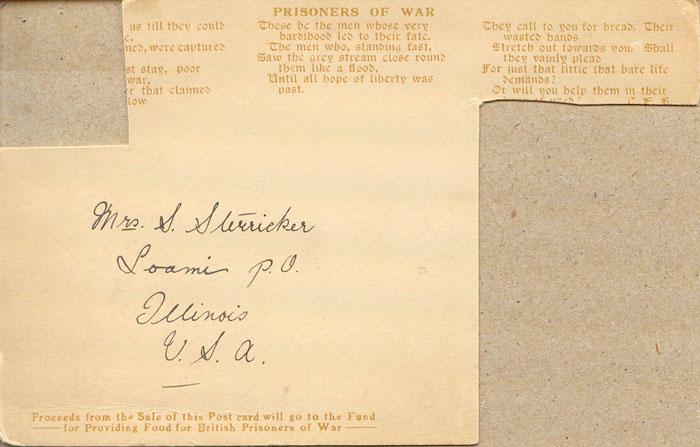 PRISONERS OF WAR
us till they could
e,
ned, were captured
st stay, poor
war.
r that claimed
low
These be the men whose very
hardihood led to their fate.
The men who, standing fast,
Saw the grey stream close round
them like a flood,
Until all hope of liberty was
past.
They call to you for bread. Their
wasted hands
Stretch out towards you. Shall
they vainly plead
For just that little that bare life
demands?
Or will you help them in their
need?
Mrs. S. Sterricker
Loami P.O.
Illinois
U. S. A.
Proceeds from the Sale of this Post card will go to the Fund
for Providing Food for British Prisoners of War